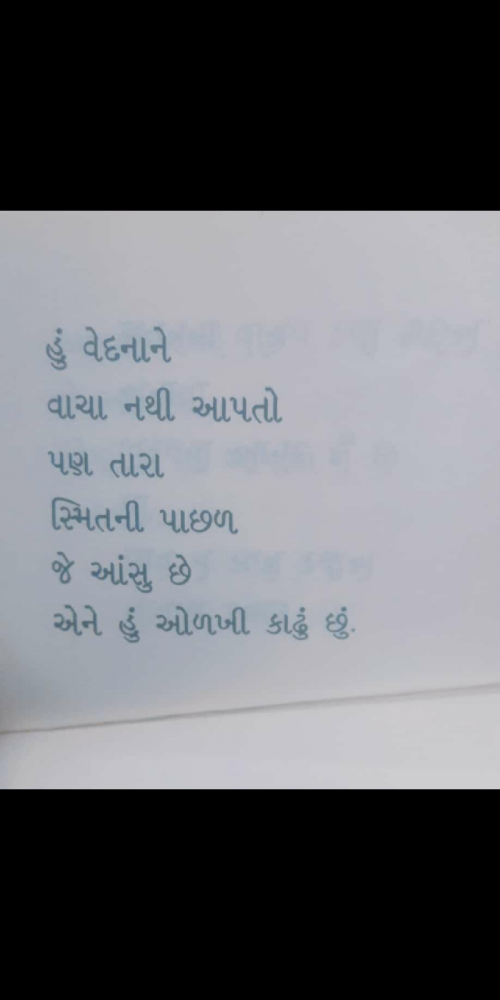 હું વેદનાને
વાચા નથી આપતો
પણ તારા
સ્મિતની પાછળ
જે આંસુ છે
એને હું ઓળખી કાઢું છું.